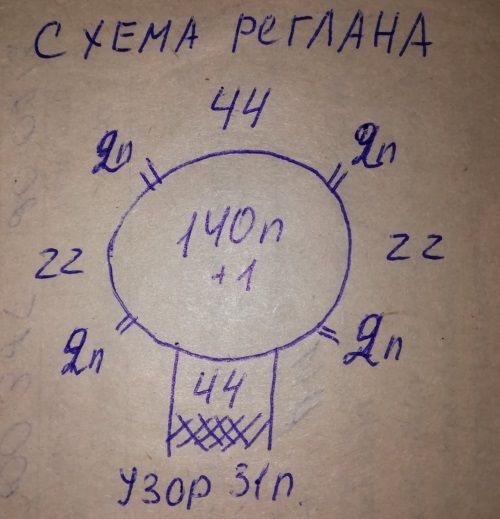 СХЕМА РЕГЛАНА
44
2п 2п
140п
+1
22 22
2п 2п
44
УЗОР 31п.